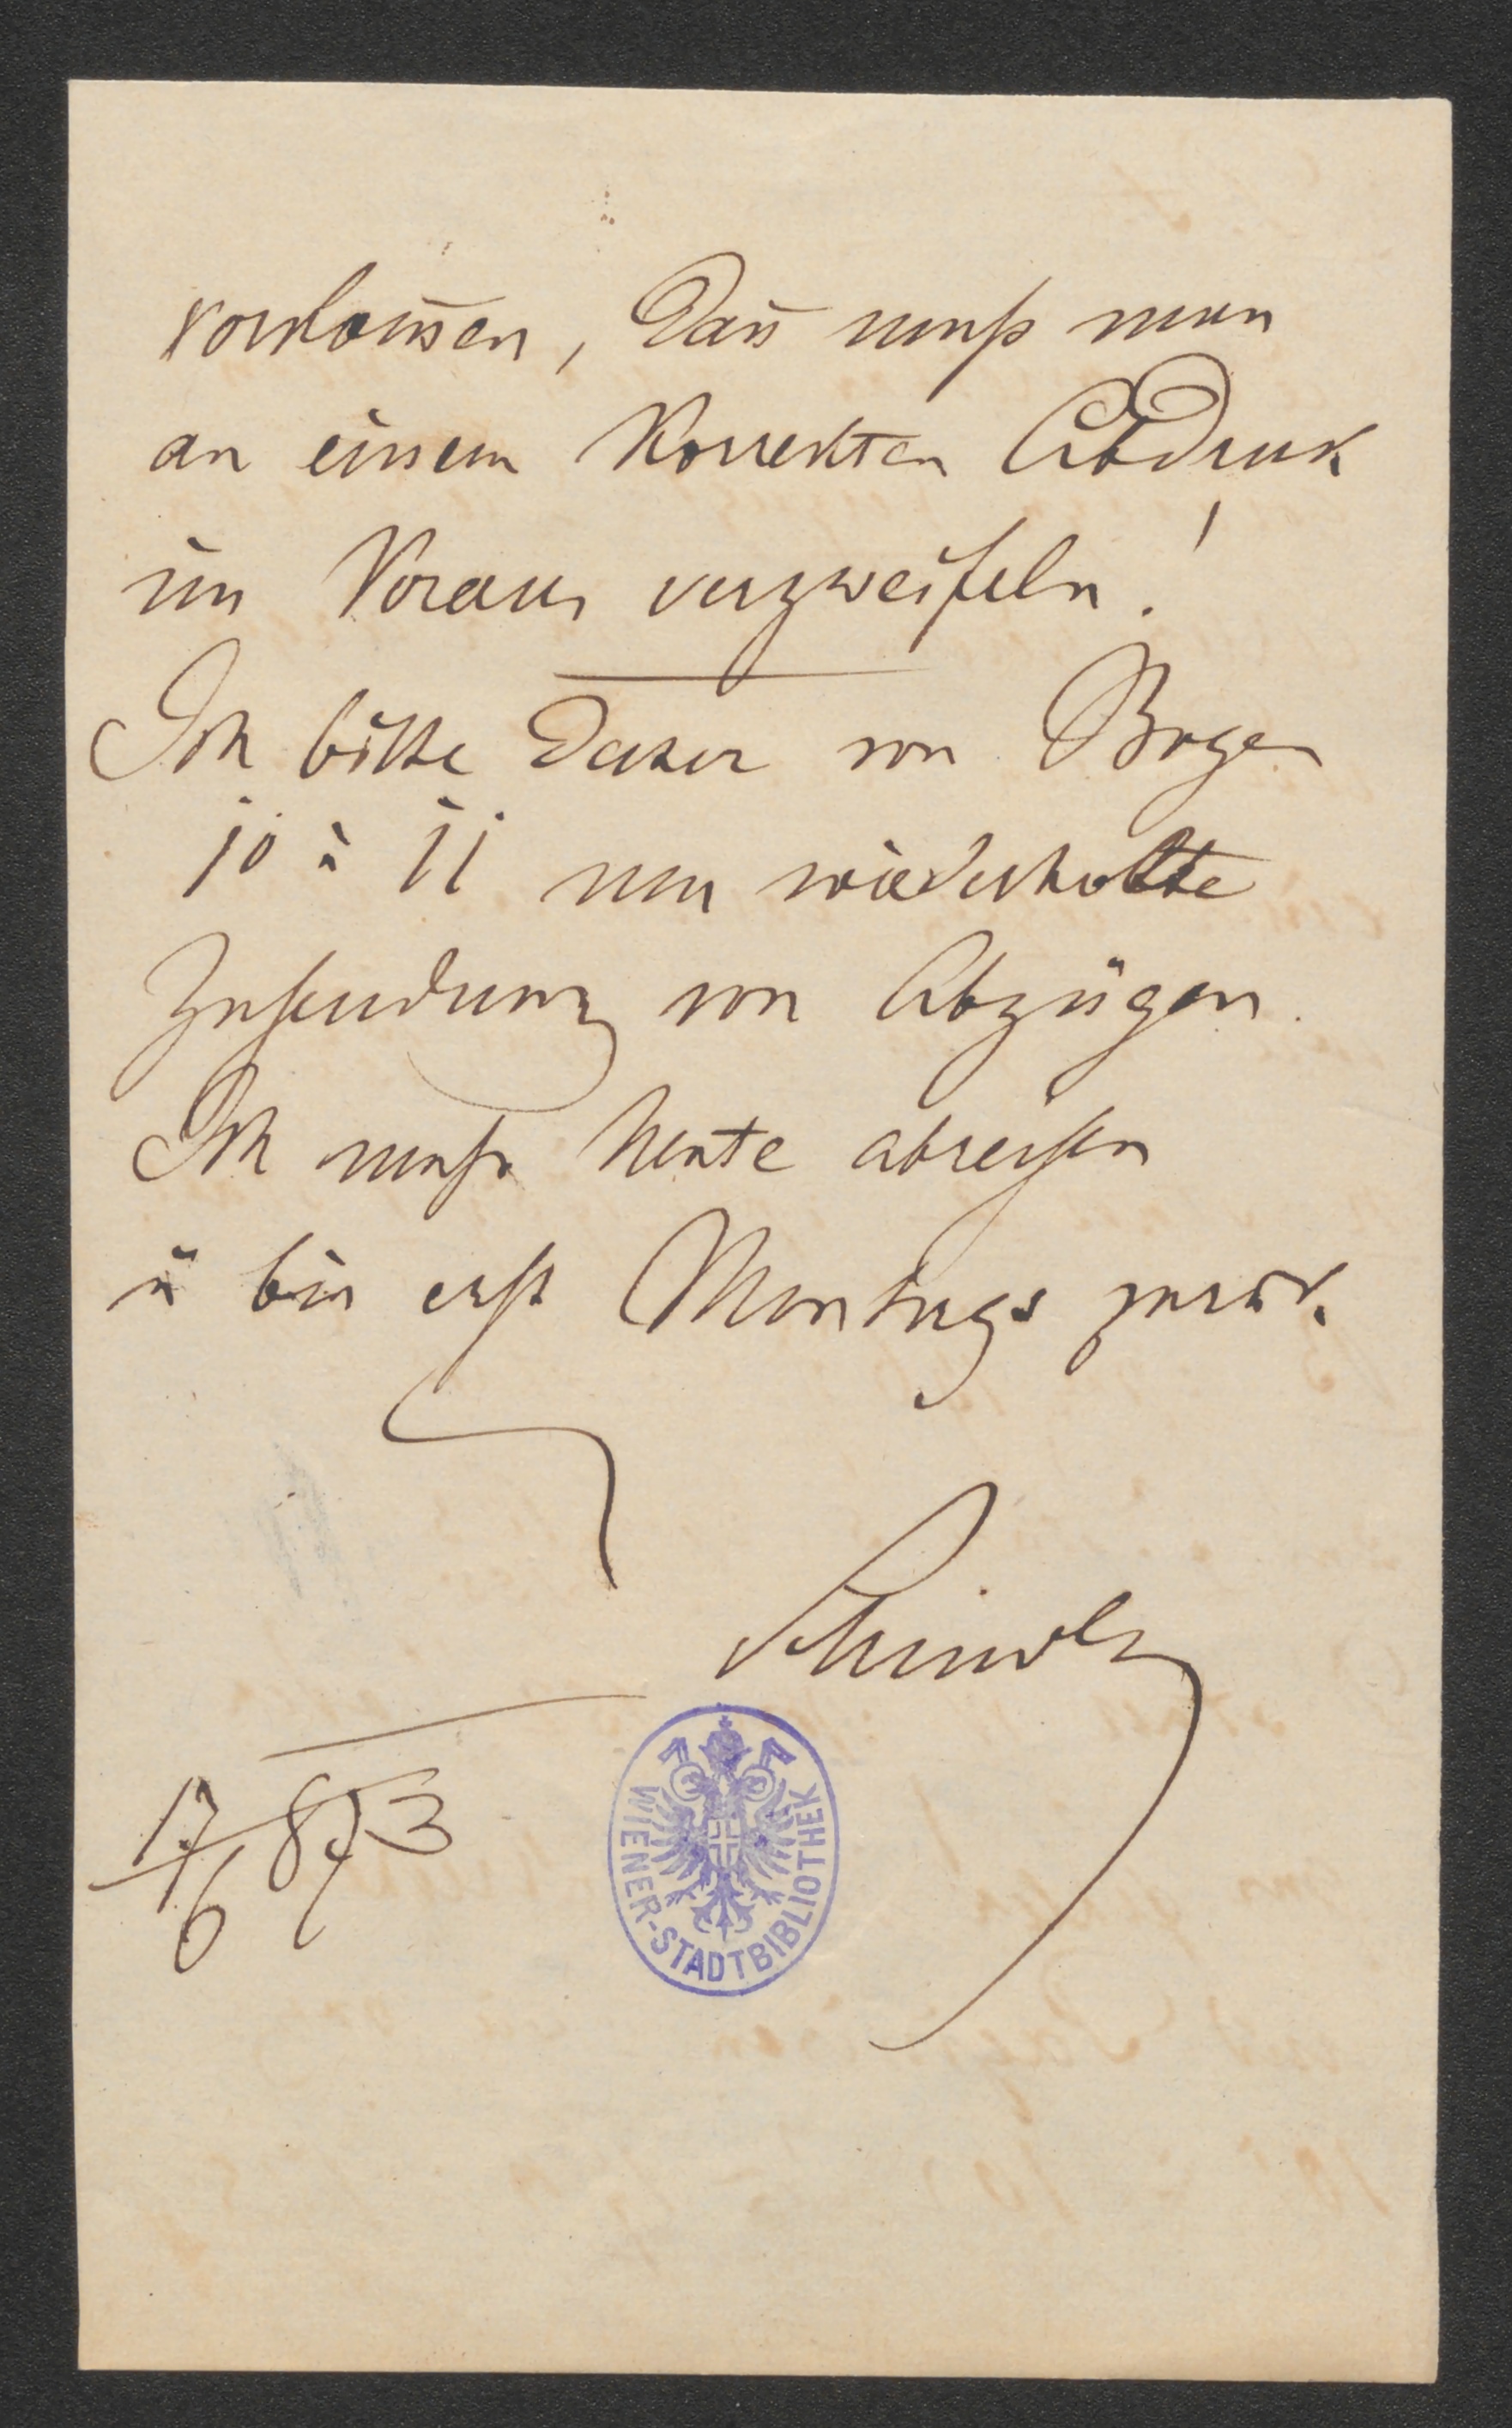 vorkom̅en, dan̅ muß man
an einem korrekten Abdruck
im Voraus verzweifeln!
Ich bitte daher von Bogen
10 u 11 um wiederholte
Zusendung von Abzügen.
Ich muß heute abreisen
u bin erst Montags zurück.
Schindler
17/6 873
WIENER-STADTBIBLIOTHEK